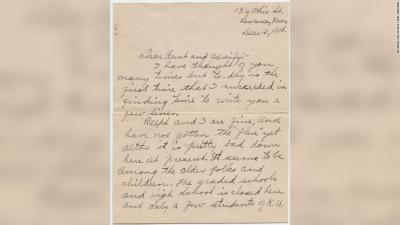 1319 Ohio St.
Lawrence, Kans,
Dec. 10, 1918.
Dear Aunt and Family:
I have thought of you
many times but to-day is the
first time that I succeeded in
finding time to write you a
few lines.
Ralph and I are fine, and
have not gotten the "flu" yet
altho it is pretty bad down
here at present. It seems to be
among the older folks and
children. The graded schools
and High School is closed here
but only a few students of K.U.